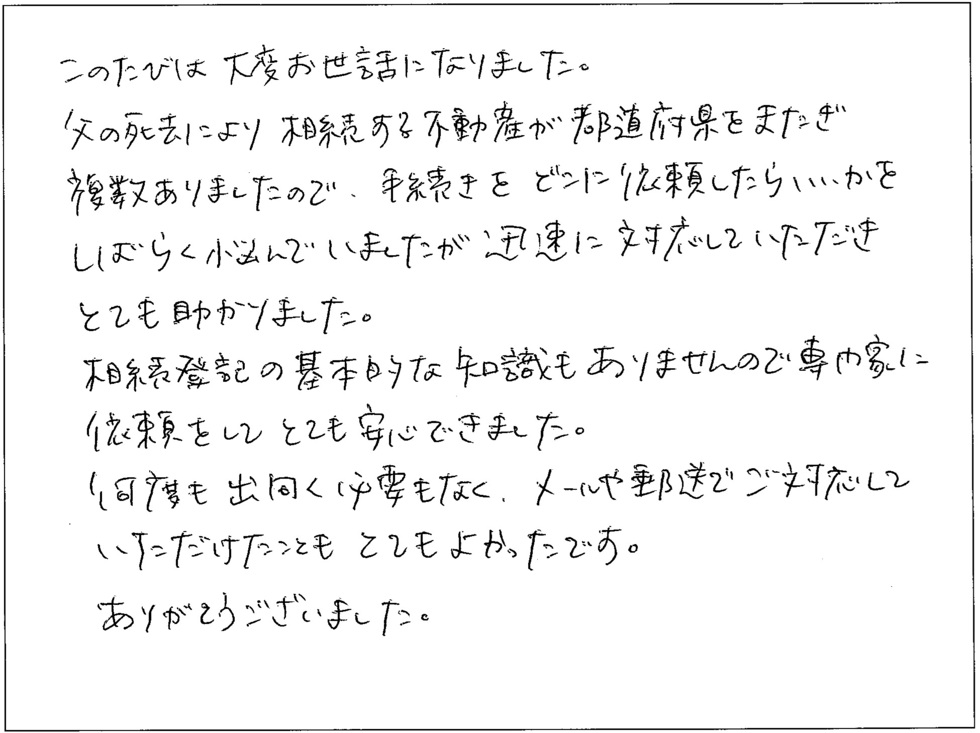 このたびは大変お世話になりました。
父の死去により相続する不動産が都道府県をまたぎ
複数ありましたので、手続きをどこに依頼したらいいかを
しばらく悩んでいましたが迅速に対応していただき
とても助かりました。
相続登記の基本的な知識もありませんので専門家に
依頼をしてとても安心できました。
何度も出向く必要もなく、メールや郵送でご対応して
いただけたこともとてもよかったです。
ありがとうございました。